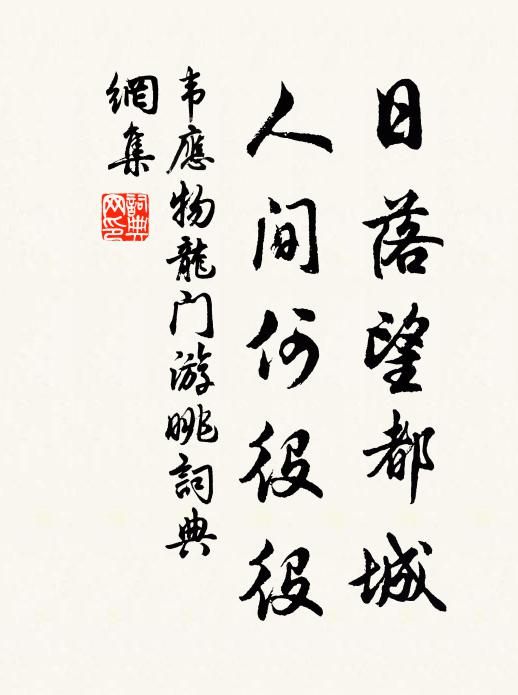 日落望都城
人间何役役
韦應物龍门游眺詞典
網集
詞典
网印